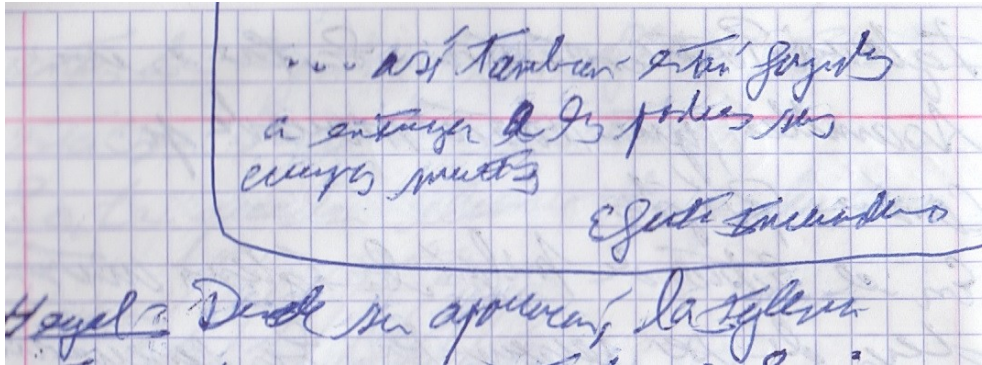 ... así también están forzados
a entregar a los padres sus
cuerpos muertos
Hegel: Desde su aparición, la Iglesia